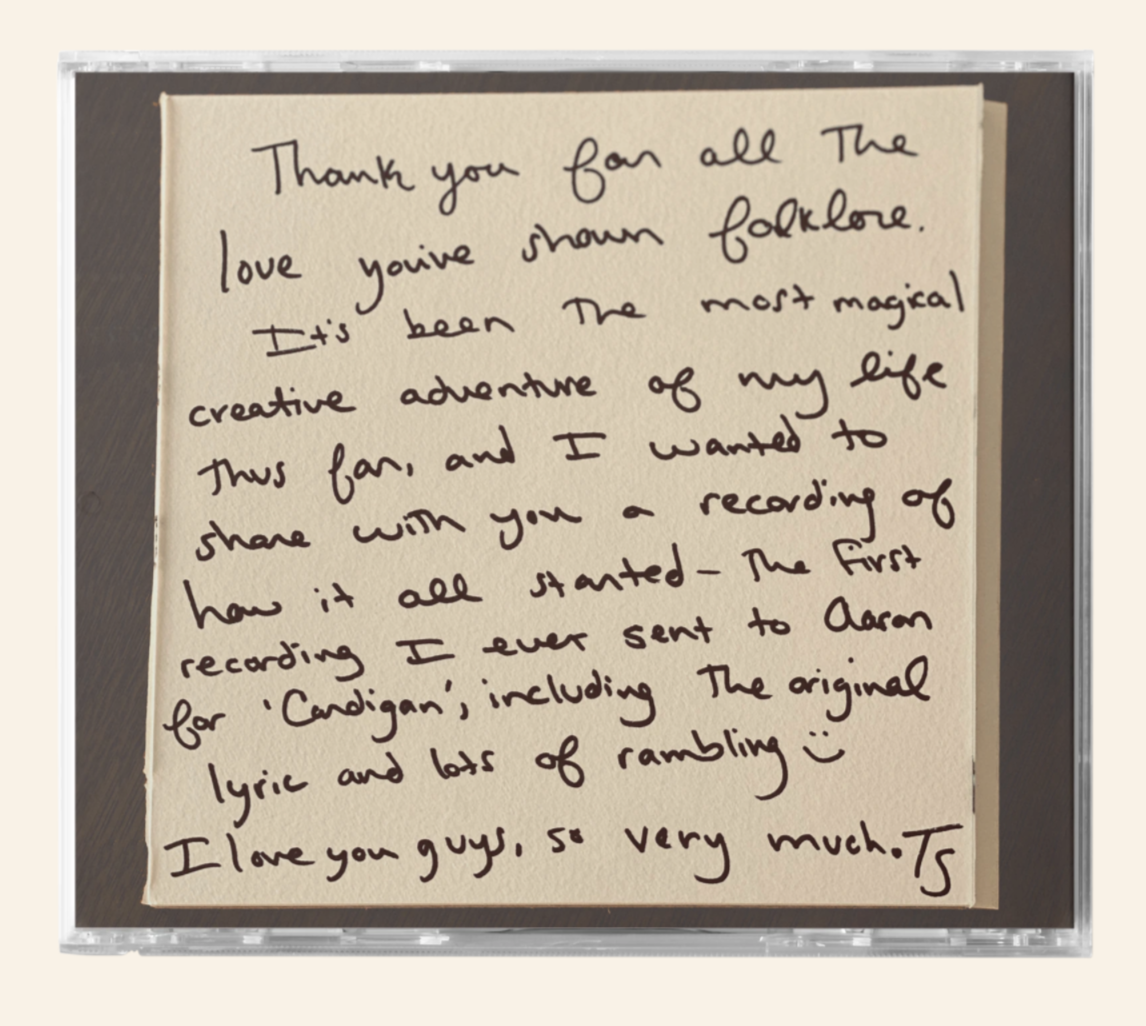 Thank you for all The
love you've shown folklore.
It's been The most magical
creative adventure of my life
Thus far, and I wanted to
share with you a recording of
how it all started - The first
recording I ever sent to Aaron
for 'Cardigan', including The original
lyric and lots of rambling :)
I love you guys, so very much. TS